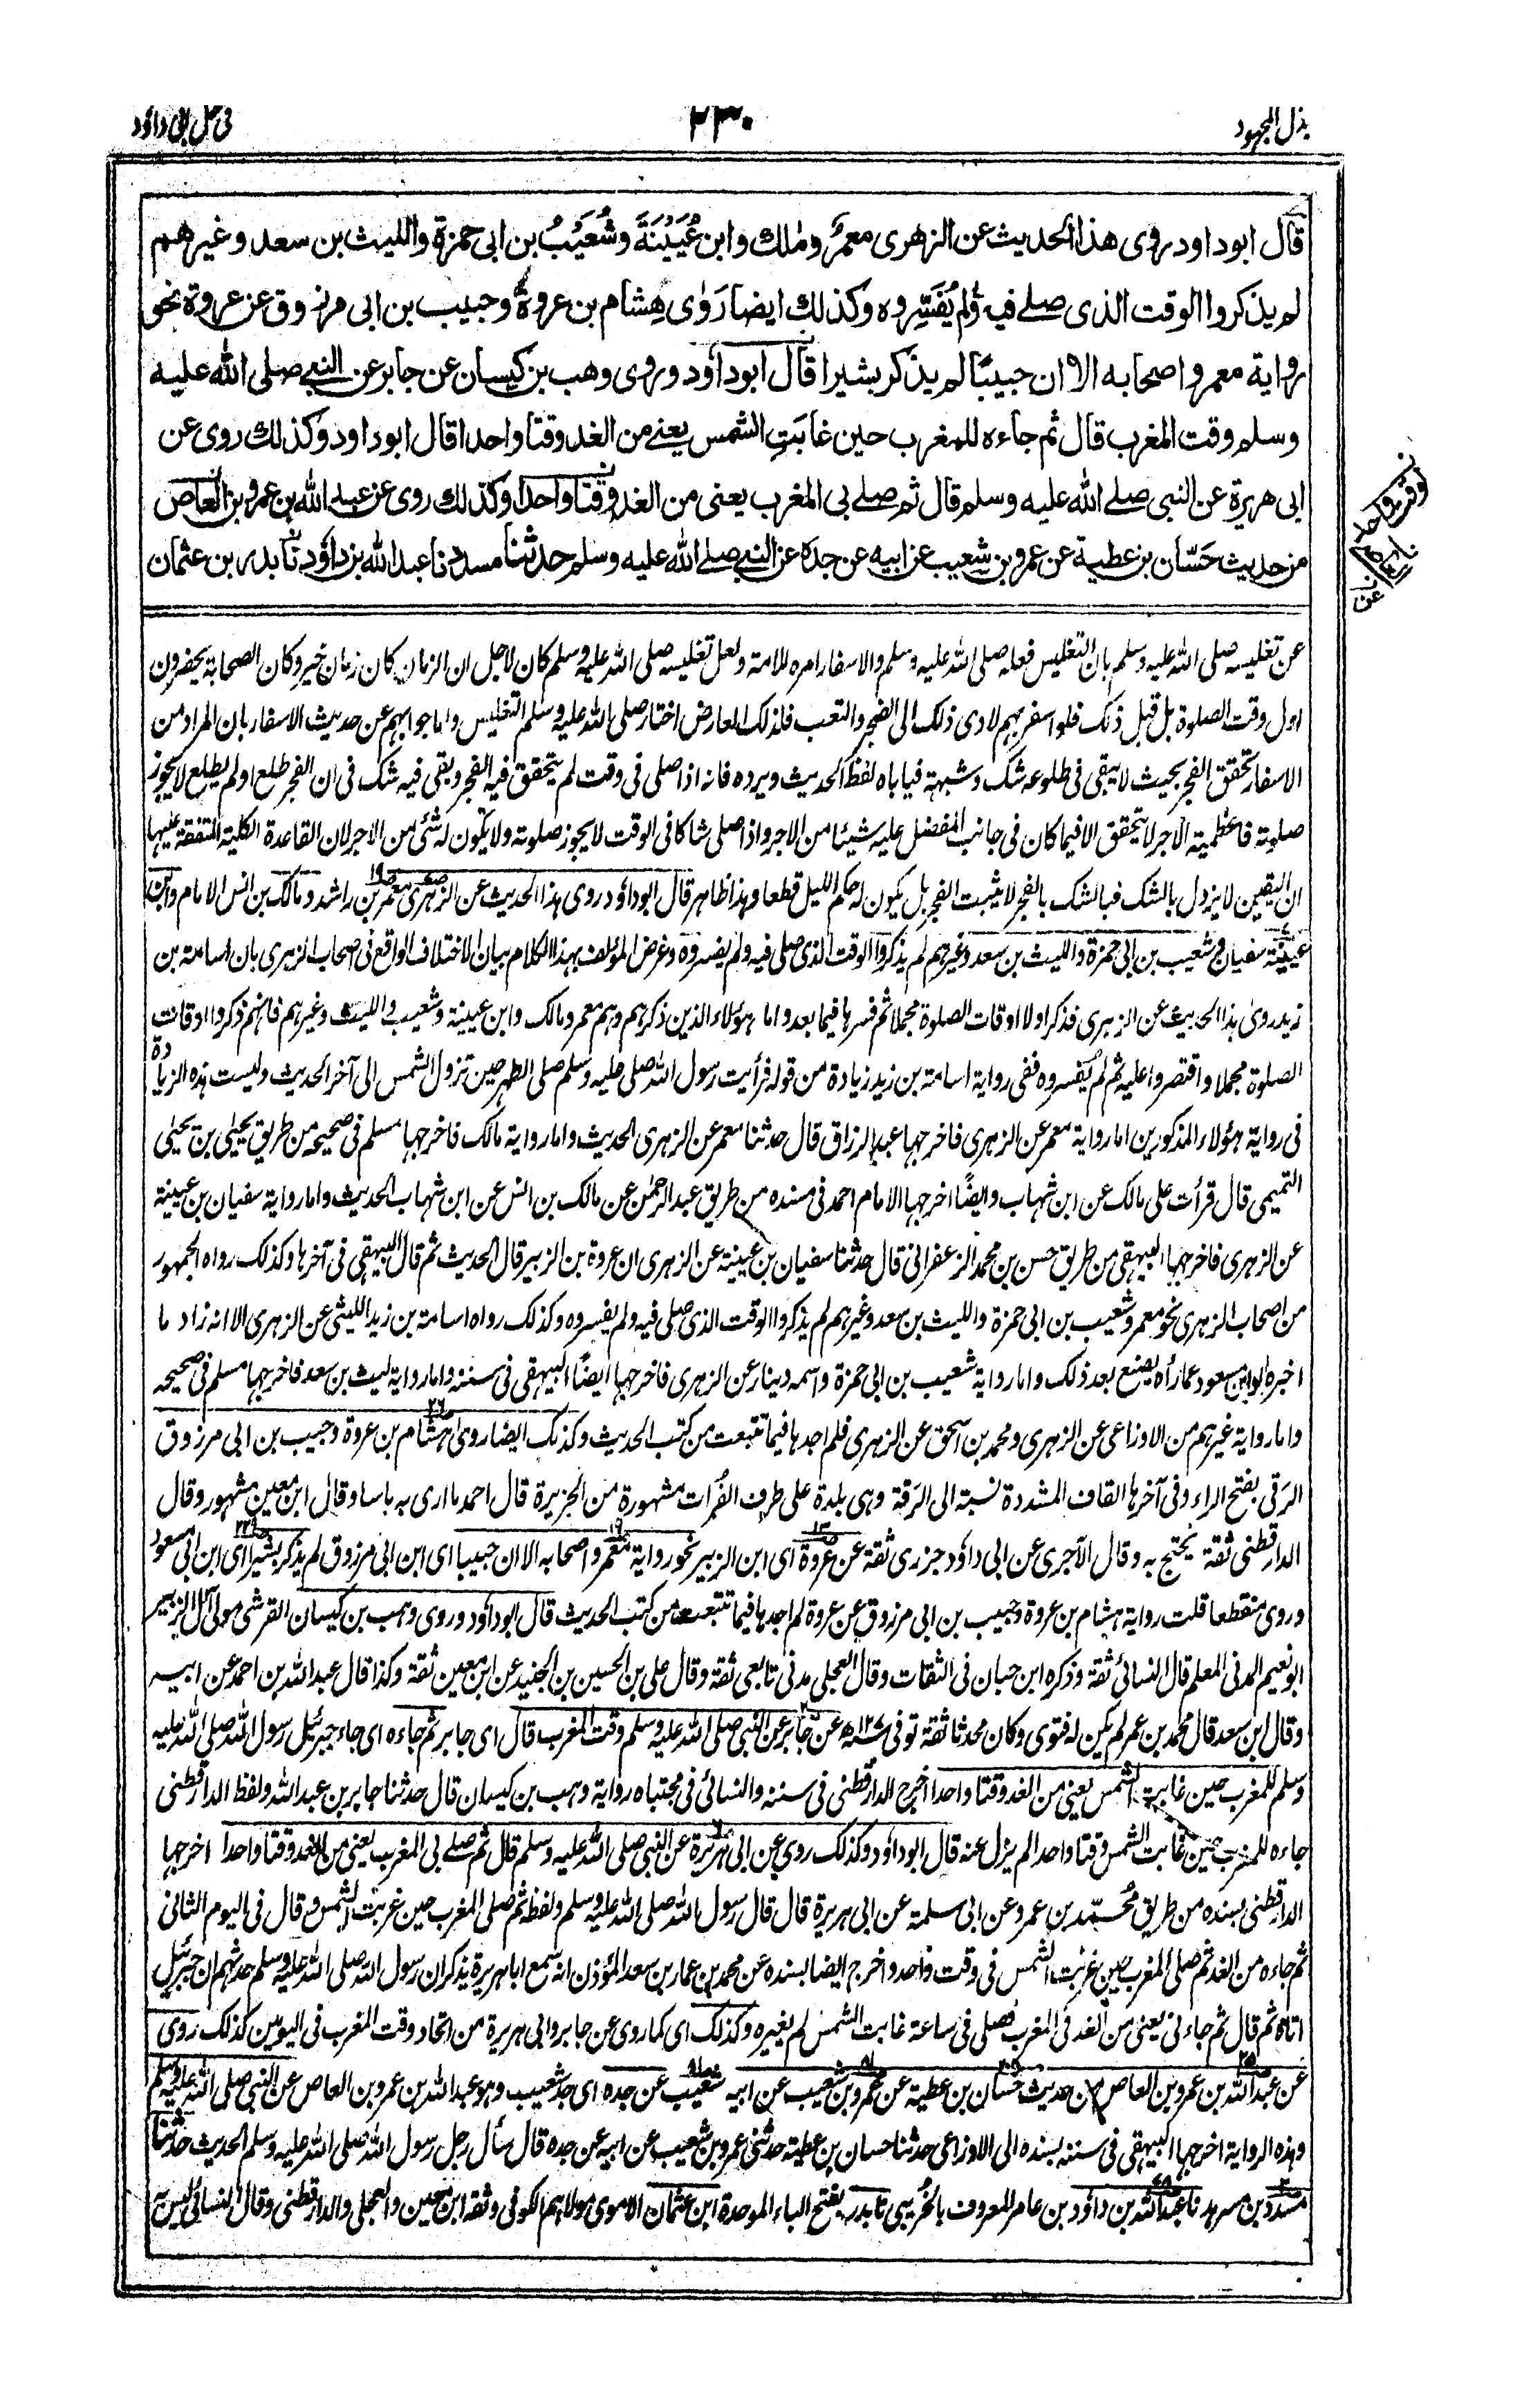 بذل المجهود
٢٣٠
فی حل ابی داؤد
قال ابوداود روى هذا الحديث عن الزهرى معمرٌ ومٰلك وابن عُيَيْنَةَ وشُعَيْبُ بن ابى حمزة والليث بن سعد وغيرهم
لم يذكروا الوقت الذى صلے فيه ولم يُفَسِّروه وكذلك ايضا رَوٰى هِشام بن عروة وحبيب بن ابى مرزوق عن عروة نحو
رواية معمر واصحابه الا ان حبيبًا لم يذكر بشيرا قال ابوداؤد وروى وهب بن كيسان عن جابر عن النبى صلى الله عليه
وسلم وقت المغرب قال ثم جاءه للمغرب حين غابَتِ الشمس يعنے من الغد وقتا واحدا قال ابوداود وكذلك روى عن
ابى هريرة عن النبى صلے الله عليه وسلم قال ثم صلے بى المغرب يعنى من الغد وقتا واحدا وكذلك روى عن عبد الله بن عمرو بن العاص
من حديث حَسّان بن عطية عن عمرو بن شعيب عن ابيه عن جده عن النبى صلے الله عليه وسلم حدثنا مسدد نا عبدالله بن داؤد نا بدر بن عثمان
عن تغليسه صلى الله عليه وسلم بان التغليس فعله صلى الله عليه وسلم والاسفار امره للامة ولعل تغليسه صلى الله عليه وسلم كان لاجل ان الزمان كان زمان خير وكان الصحابة يحضرون
اول وقت الصلوة بل قبل ذلك فلو اسفر بهم لادى ذلك الى الضجر والتعب فلذلك المعارض اختار صلى الله عليه وسلم التغليس واما جوابهم عن حديث الاسفار بان المراد من
الاسفار تحقق الفجر بحيث لا يبقى فى طلوعه شك وشبهة فياباه لفظ الحديث ويرده فانه اذا صلى فى وقت لم يتحقق فيه الفجر وبقى فيه شك فى ان الفجر طلع اولم يطلع لا يجوز
صلوته فاعظمية الاجر لا تتحقق الا فيما كان فى جانب المفضل عليه شيئا من الاجر واذا صلى شاكا فى الوقت لا يجوز صلوته ولا يكون له شئ من الاجر لان القاعدة الكلية المتفقة عليها
ان اليقين لا يزول بالشك فبالشك بالفجر لا يثبت الفجر بل يكون له حكم الليل قطعا وهذا ظاهر قال ابوداؤد روى هذا الحديث عن الزهرى معمر بن راشد ومالك بن انس الامام وابن
عيينة سفيان وشعيب بن ابى حمزة والليث بن سعد وغيرهم لم يذكروا الوقت الذى صلى فيه ولم يفسروه وغرض المؤلف بهذا الكلام بيان الاختلاف الواقع فى اصحاب الزهرى بان اسامة بن
زيد روى هذا الحديث عن الزهرى فذكر اولا اوقات الصلوة مجملا ثم فسرها فيما بعد واما هؤلاء الذين ذكرهم وهم معمر ومالك وابن عيينة وشعيب والليث وغيرهم فانهم ذكروا اوقات
الصلوة مجملا واقتصروا عليه ثم لم يفسروه ففى رواية اسامة بن زيد زيادة من قوله فرأيت رسول الله صلى عليه وسلم صلى الظهر حين تزول الشمس الى آخر الحديث وليست هذه الزيادة
فى رواية هؤلاء المذكورين اما رواية معمر عن الزهرى فاخرجها عبد الرزاق قال حدثنا معمر عن الزهرى الحديث واما رواية مالك فاخرجها مسلم فى صحيحه من طريق يحيٰى بن يحيٰى
التميمى قال قرأت على مالك عن ابن شهاب وايضًا اخرجها الامام احمد فى مسنده من طريق عبد الرحمٰن عن مالك بن انس عن ابن شهاب الحديث واما رواية سفيان بن عيينة
عن الزهرى فاخرجها البيهقى من طريق حسن بن محمد الزعفرانى قال حدثنا سفيان بن عيينة عن الزهرى ان عروة بن الزبير قال الحديث ثم قال البيهقى فى آخرها وكذلك رواه الجمهور
من اصحاب الزهرى نحو معمر وشعيب بن ابى حمزة والليث بن سعد وغيرهم لم يذكروا الوقت الذى صلى فيه ولم يفسروه وكذلك رواه اسامة بن زيد الليثى عن الزهرى الا انه زاد ما
اخبره ابو مسعود عمارآه يصنع بعد ذلك واما رواية شعيب بن ابى حمزة واسمه دينار عن الزهرى فاخرجها ايضًا البيهقى فى سننه واما رواية ليث بن سعد فاخرجها مسلم فى صحيحه
واما رواية غيرهم من الاوزاعى عن الزهرى ومحمد بن اسحق عن الزهرى فلم اجدها فيما تتبعت من كتب الحديث وكذلك ايضا روى هشام بن عروة وحبيب بن ابى مرزوق
الرقى بفتح الراء وفى آخرها القاف المشددة نسبة الى الرَقة وهى بلدة على طرف الفُرات مشهورة من الجزيرة قال احمد ما ارى به باسا وقال ابن معين مشهور وقال
الدارقطنى ثقة يحتج به وقال الآجرى عن ابى داؤد جزرى ثقة عن عروة اى ابن الزبير نحو رواية معمر واصحابه الا ان حبيبا اى ابن ابى مرزوق لم يذكر بشيرا اى ابن ابى مسعود
وروى منقطعا قلت رواية هشام بن عروة وحبيب بن ابى مرزوق عن عروة لم اجدها فيما تتبعت من كتب الحديث قال ابوداؤد وروى وهب بن كيسان القرشى مولى آل الزبير
ابونعيم المدنى المعلم قال النسائى ثقة وذكره ابن حبان فى الثقات وقال العجلى مدنى تابعى ثقة وقال على بن الحسين بن الجنيد عن ابن معين ثقة وكذا قال عبد الله بن احمد عن ابيه
وقال ابن سعد قال محمد بن عمر لم يكن له فتوى وكان محدثا ثقة توفى سنة ١٢٧ھ عن جابر عن النبى صلى الله عليه وسلم وقت المغرب قال اى جابر ثم جاءه اى جاء جبرئيل رسول الله صلى الله عليه
وسلم للمغرب حين غابت الشمس يعنى من الغد وقتا واحدا اخرج الدارقطنى فى سننه والنسائى فى مجتباه رواية وهب بن كيسان قال حدثنا جابر بن عبد الله ولفظ الدارقطنى
جاءه للمغرب حين غابت الشمس وقتا واحدا لم يزل عنه قال ابوداؤد وكذلك روى عن ابى هريرة عن النبى صلى الله عليه وسلم قال ثم صلے بى المغرب يعنى من الغد وقتا واحدا اخرجها
الدارقطنى بسنده من طريق محُمّد بن عمرو عن ابى سلمة عن ابى هريرة قال قال رسول الله صلى الله عليه وسلم ولفظه ثم صلى المغرب حين غربت الشمس وقال فى اليوم الثانى
ثم جاءه من الغد ثم صلى المغرب حين غربت الشمس فى وقت واحد واخرج ايضا بسنده عن محمد بن عمار بن سعد المؤذن انه سمع اباهريرة يذكر ان رسول الله صلى الله عليه وسلم حدثهم ان جبرئيل
اتاه ثم قال ثم جاءنى يعنى من الغد فى المغرب فصلى فى ساعة غابت الشمس لم يغيره وكذلك اى كما روى عن جابر وابى هريرة من اتحاد وقت المغرب فى اليومين كذلك روى
عن عبد الله بن عمرو بن العاص من حديث حسان بن عطية عن عمرو بن شعيب عن ابيه شعيب عن جده اى جد شعيب وهو عبد الله بن عمرو بن العاص عن النبى صلى الله عليه وسلم
وهذه الرواية اخرجها البيهقى فى سننه بسنده الى الاوزاعى حدثنا حسان بن عطية حدثنى عمرو بن شعيب عن ابيه عن جده قال سأل رجل رسول الله صلى الله عليه وسلم الحديث حدثنا
مسدد بن مسرهد نا عبد الله بن داؤد بن عامر المعروف بالخُريبى نا بدر بفتح الباء الموحدة ابن عثمان الاموى مولاهم الكوفى وثقه ابن معين والعجلى والدارقطنى وقال النسائى ليس به